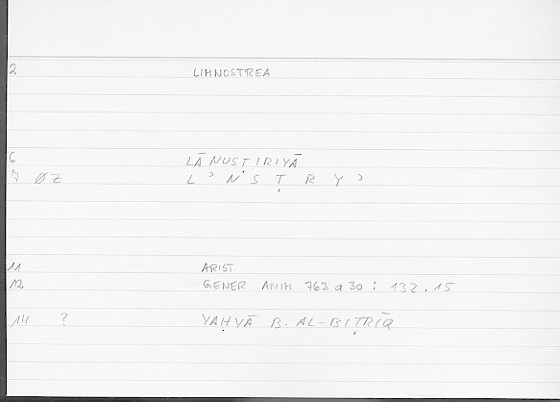 2 LIMNOSTREA
6 LĀNUSṬIRIYĀ
7 ØZ L ʾ N S Ṭ R Y ʾ
11 ARIST
12 GENER ANIM 763 a 30 : 132.15
14 ? YAḤYĀ B. AL-BIṬRĪQ